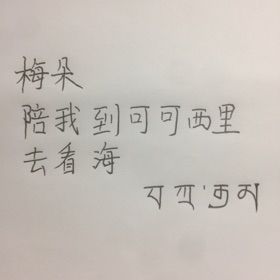 梅朵
陪我到可可西里
去看海
པ ཀ་ རྟ ས